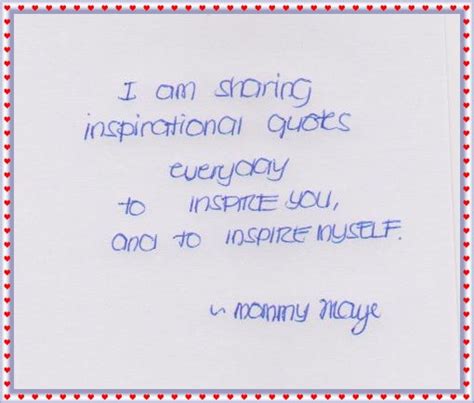 I am sharing
inspirational quotes
everyday
to INSPIRE YOU,
and to INSPIRE MYSELF.
~ Mommy Maye